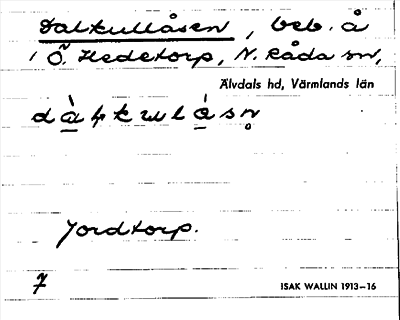 Dalkullåsen, beb. å
i Ö. Hedetorp, N. Råda sn,
Älvdals hd, Värmlands län
Jordtorp.
7
ISAK WALLIN 1913–16